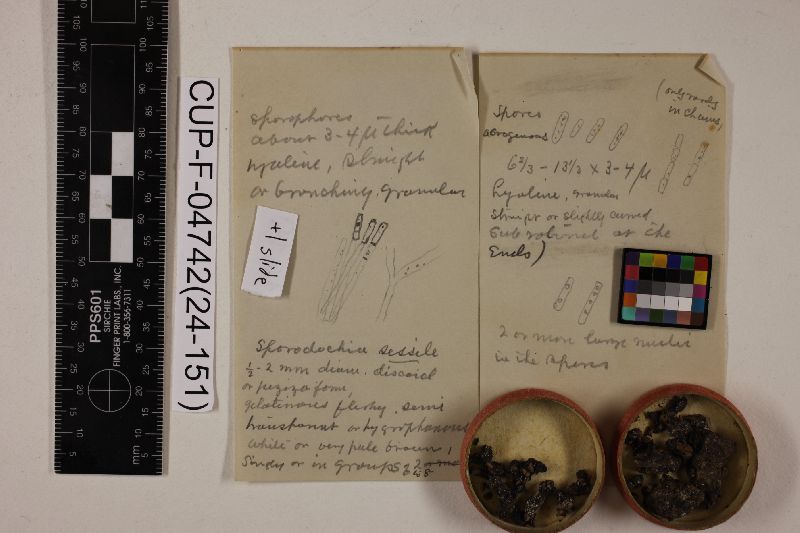 CUP-F-04742(24-151)
PPS601
SIRCHIE
FINGER PRINT LABS., INC.
1-800-356-7311
mm
+1 slide
sporophores
about 3-4 µ thick
hyaline, straight
or branching, granular
Sporodochia sessile
½-2 mm diam. discoid
or pezizaform,
gelatinous fleshy, semi
transparent or hygrophanous
white or very pale brown,
Singly or in groups
(only rarely
in chains)
Spores
acrogenous
6⅔ - 13⅓ x 3-4 µ
hyaline, granular
straight or slightly curved
Subrotund at the
Ends)
2 or more large nuclei
in the spores